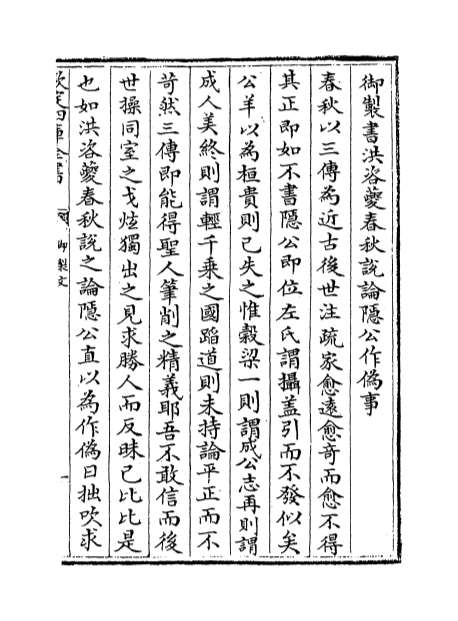 御製書洪咨夔春秋說論隱公作偽事
春秋以三傳為近古後世注疏家愈遠愈竒而愈不得
其正即如不書隱公即位左氏謂攝盖引而不發似矣
公羊以為桓貴則已失之惟榖梁一則謂成公志再則謂
成人美終則謂輕千乗之國蹈道則未持論平正而不
苛然三傳即能得聖人筆削之精義耶吾不敢信而後
世操同室之戈炫獨出之見求勝人而反昧己比比是
也如洪咨夔春秋說之論隱公直以為作偽日拙吹求
欽定四庫全書
御製文
一